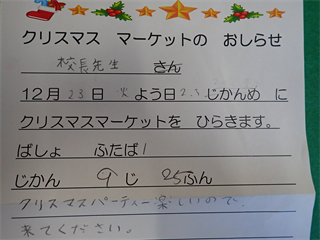 クリスマス マーケットの おしらせ
校長先生 さん
12月 23日 火よう日 2.3 じかんめ に
クリスマスマーケットを ひらきます。
ばしょ ふたば1
じかん 9じ 25ふん
クリスマスパーティー楽しいので、
来てください。